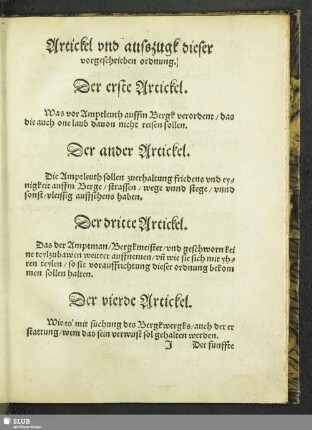 Artickel vnd auszugk dieser
vorgeschrieben ordnung.
Der erste Artickel.
Was vor Amptleuth auffm Bergk verordent / das
die auch one laub dauon nicht reisen sollen.
Der ander Artickel.
Die Amptleuth sollen zuerhaltung friedens vnd ey⸗
nigkeit auffm Berge / strassen / wege vnnd stege / vnnd
sonst / vleissig auffsehens haben.
Der dritte Artickel.
Das der Amptman / Bergkmeister / vnd geschworn kei
ne teylzubawen weitter auffnemen / vñ wie sie sich mit yh⸗
ren teylen / so sie vorauffrichtung dieser ordnung bekom
men sollen halten.
Der vierde Artickel.
Wie es mit suchung des Bergkwergks / auch der er
stattung / wem das sein verwust sol gehalten werden.
J Der funffte
SLUB